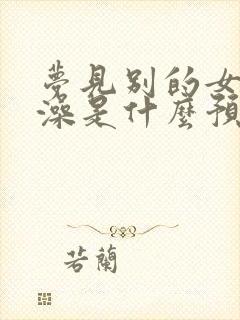 夢見別的女
澡是什麼預
若蘭